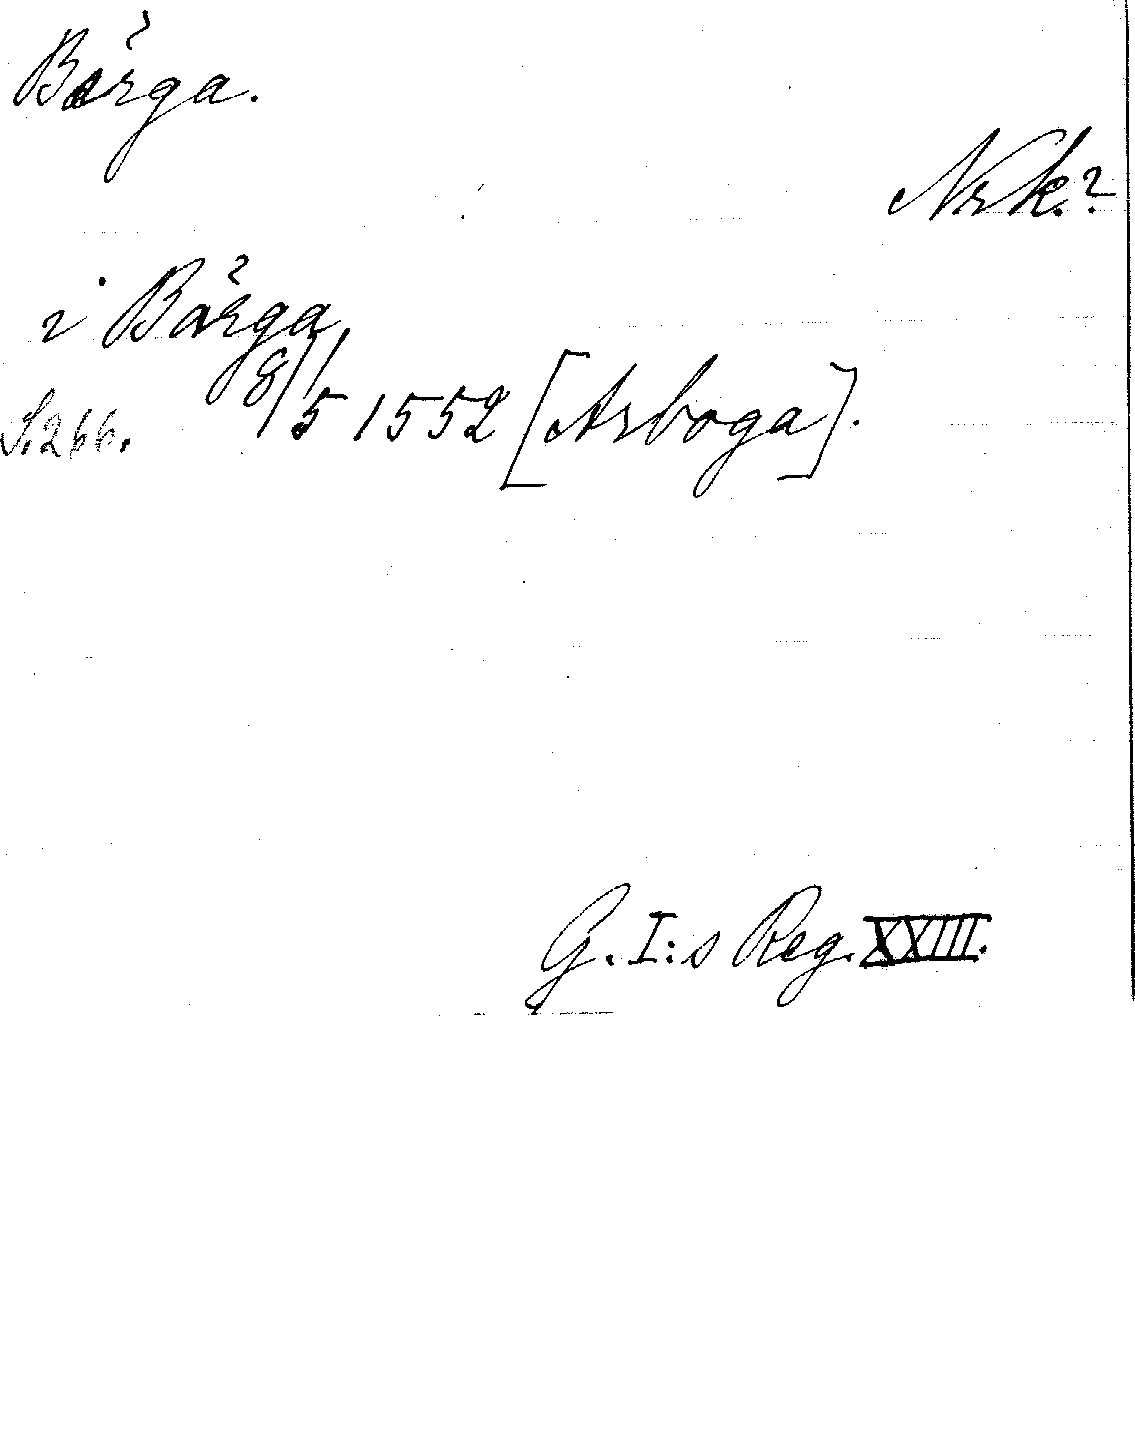 Bärga.
Nrk.?
i Bärga,
8/5 1552 [Arboga].
S. 266.
G. I:s Reg. XXIII.